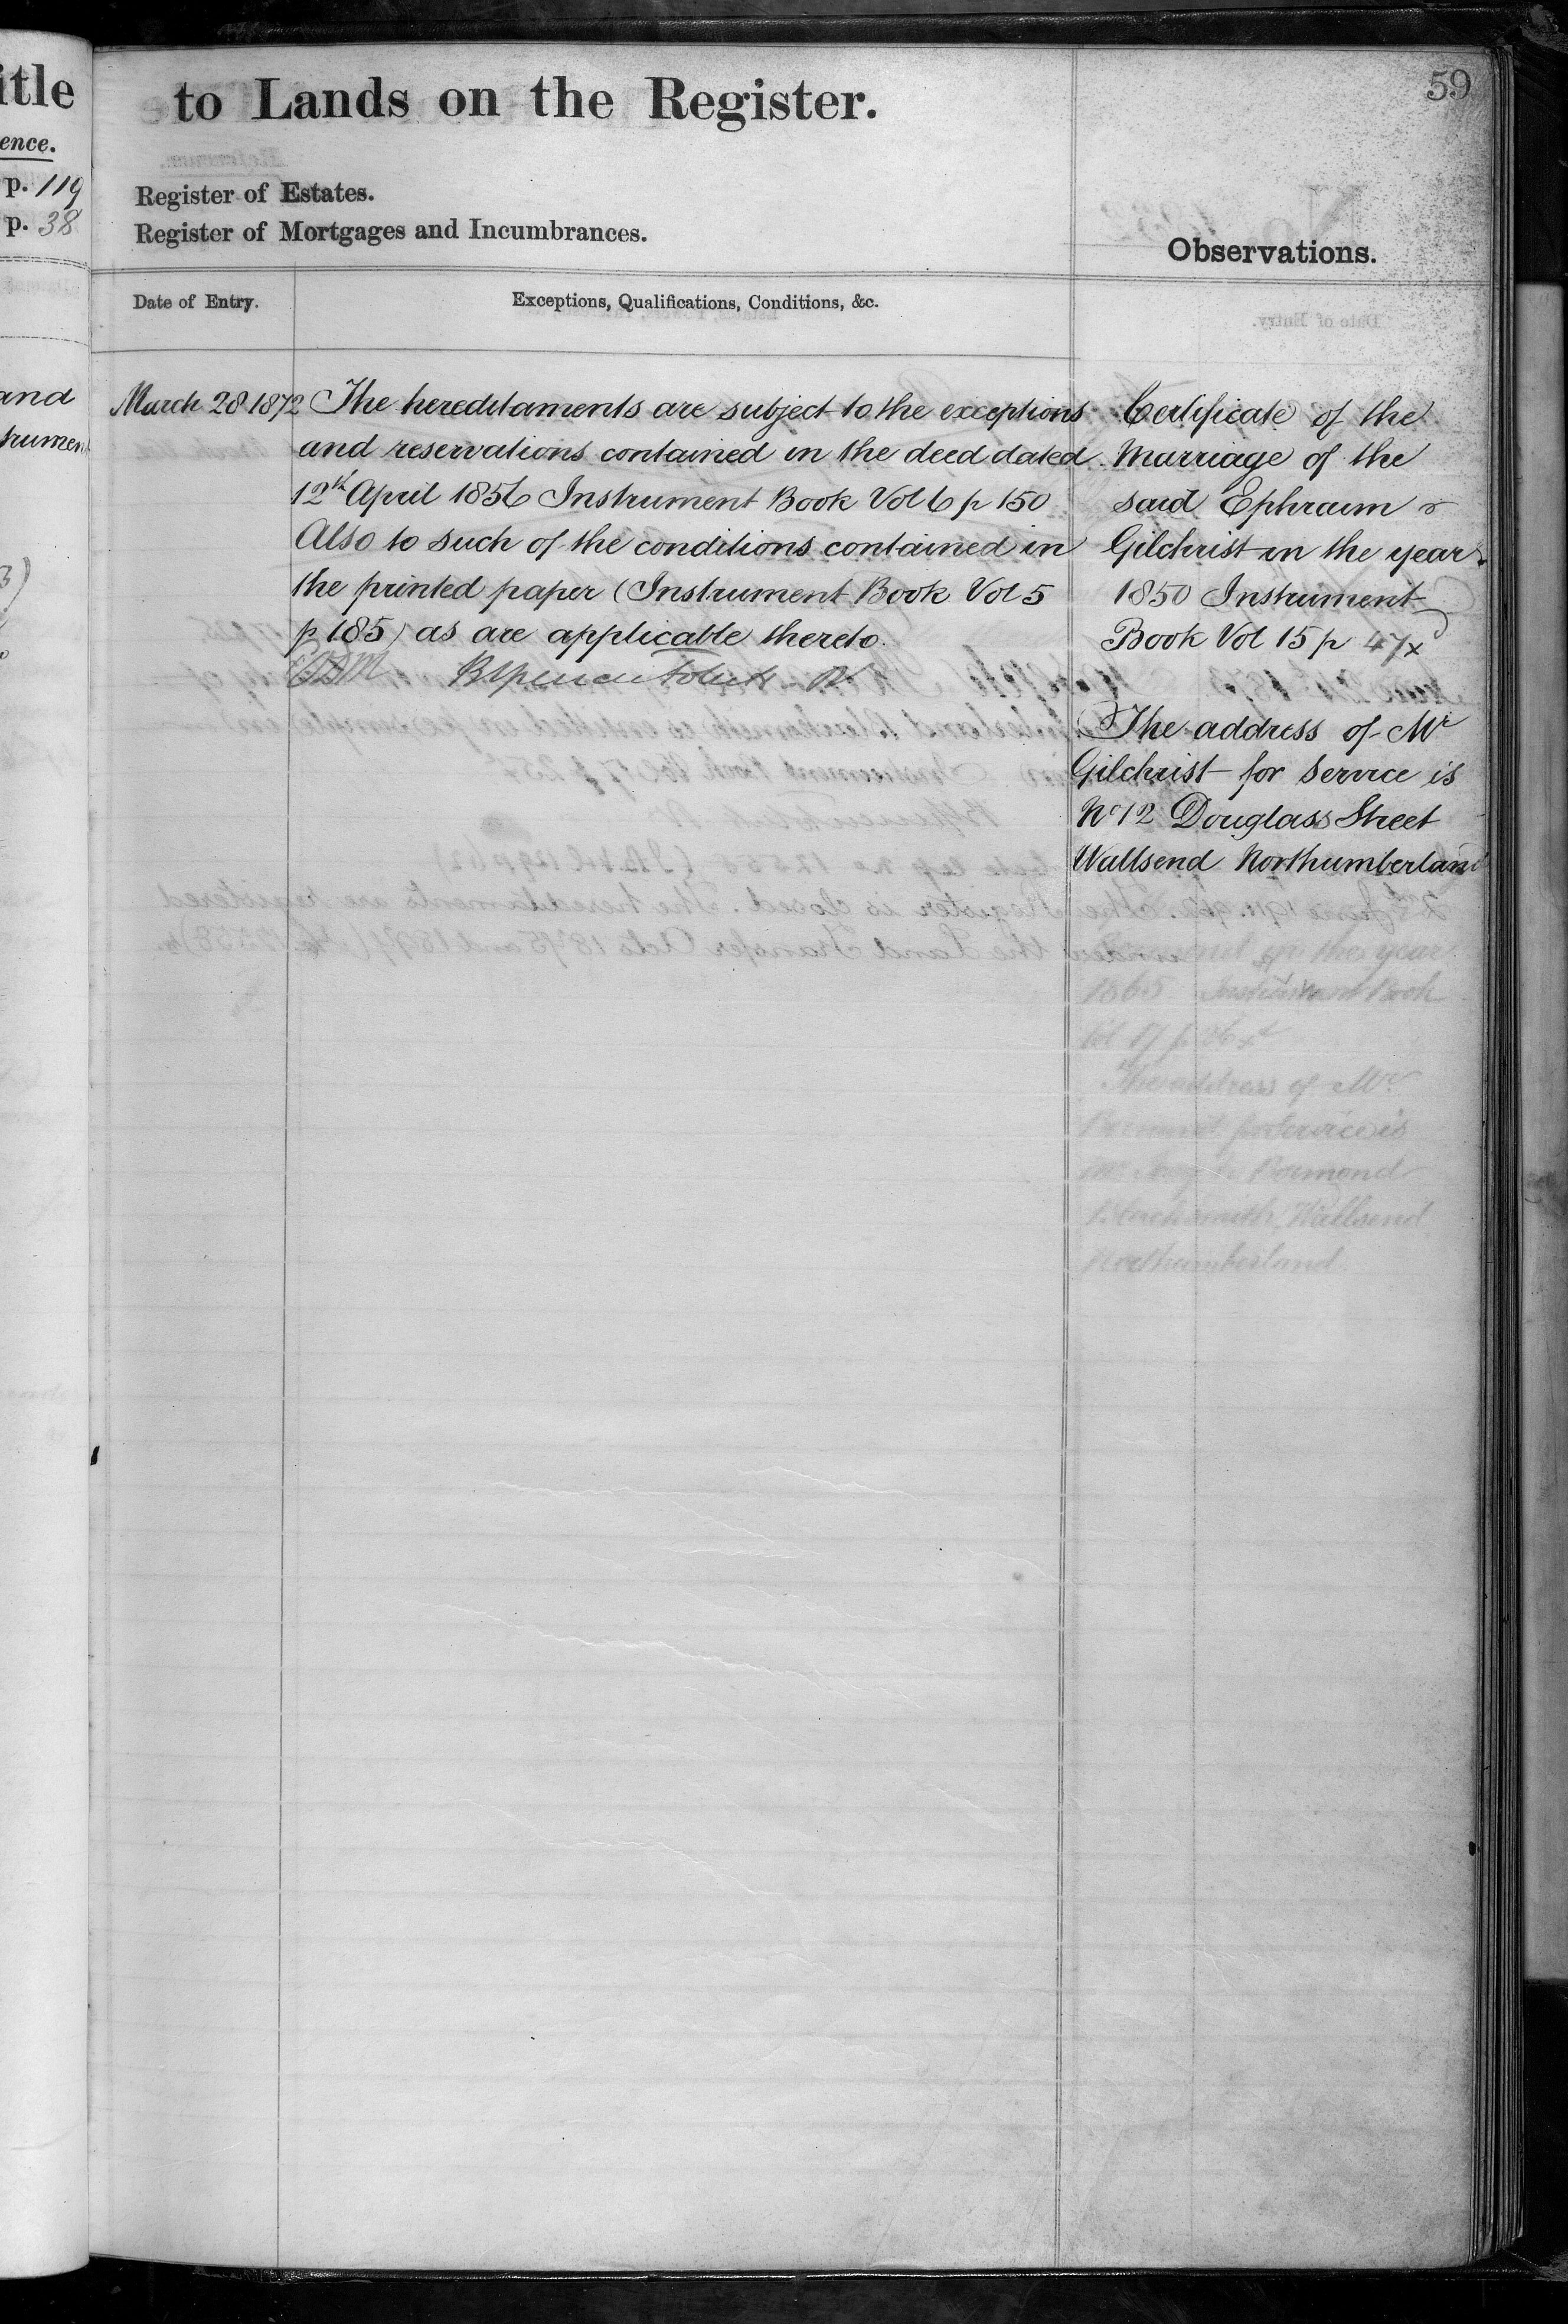 itle
ence.
p. 119
p. 38
and
trumen
59
to Lands on the Register.
Register of Estates.
Register of Mortgages and Incumbrances.
Observations.
Date of Entry.
Exceptions, Qualifications, Conditions, &c.
March 28 1872
The hereditaments are subject to the exceptions
and reservations contained in the deed dated
12th April 1856 Instrument Book Vol 6 p 150
Also to such of the conditions contained in
the printed paper (Instrument Book Vol 5
p 185) as are applicable thereto.
Certificate of the
Marriage of the
said Ephraim
Gilchrist in the year
1850 Instrument
Book Vol 15 p 47x
The address of Mr
Gilchrist for service is
No 12 Douglass Street
Wallsend Northumberland
in the year
1865 Instrument Book
Vol 17 p 26
The address of Mr
for service is
Blacksmith, Wallsend
Northumberland